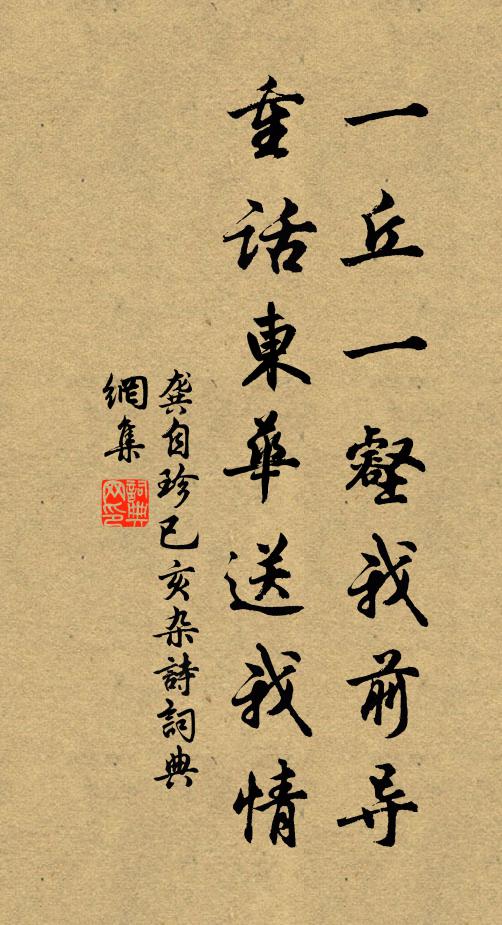 一丘一壑我前导
重话東華送我情
龚自珍己亥杂詩詞典
網集
詞典
网印